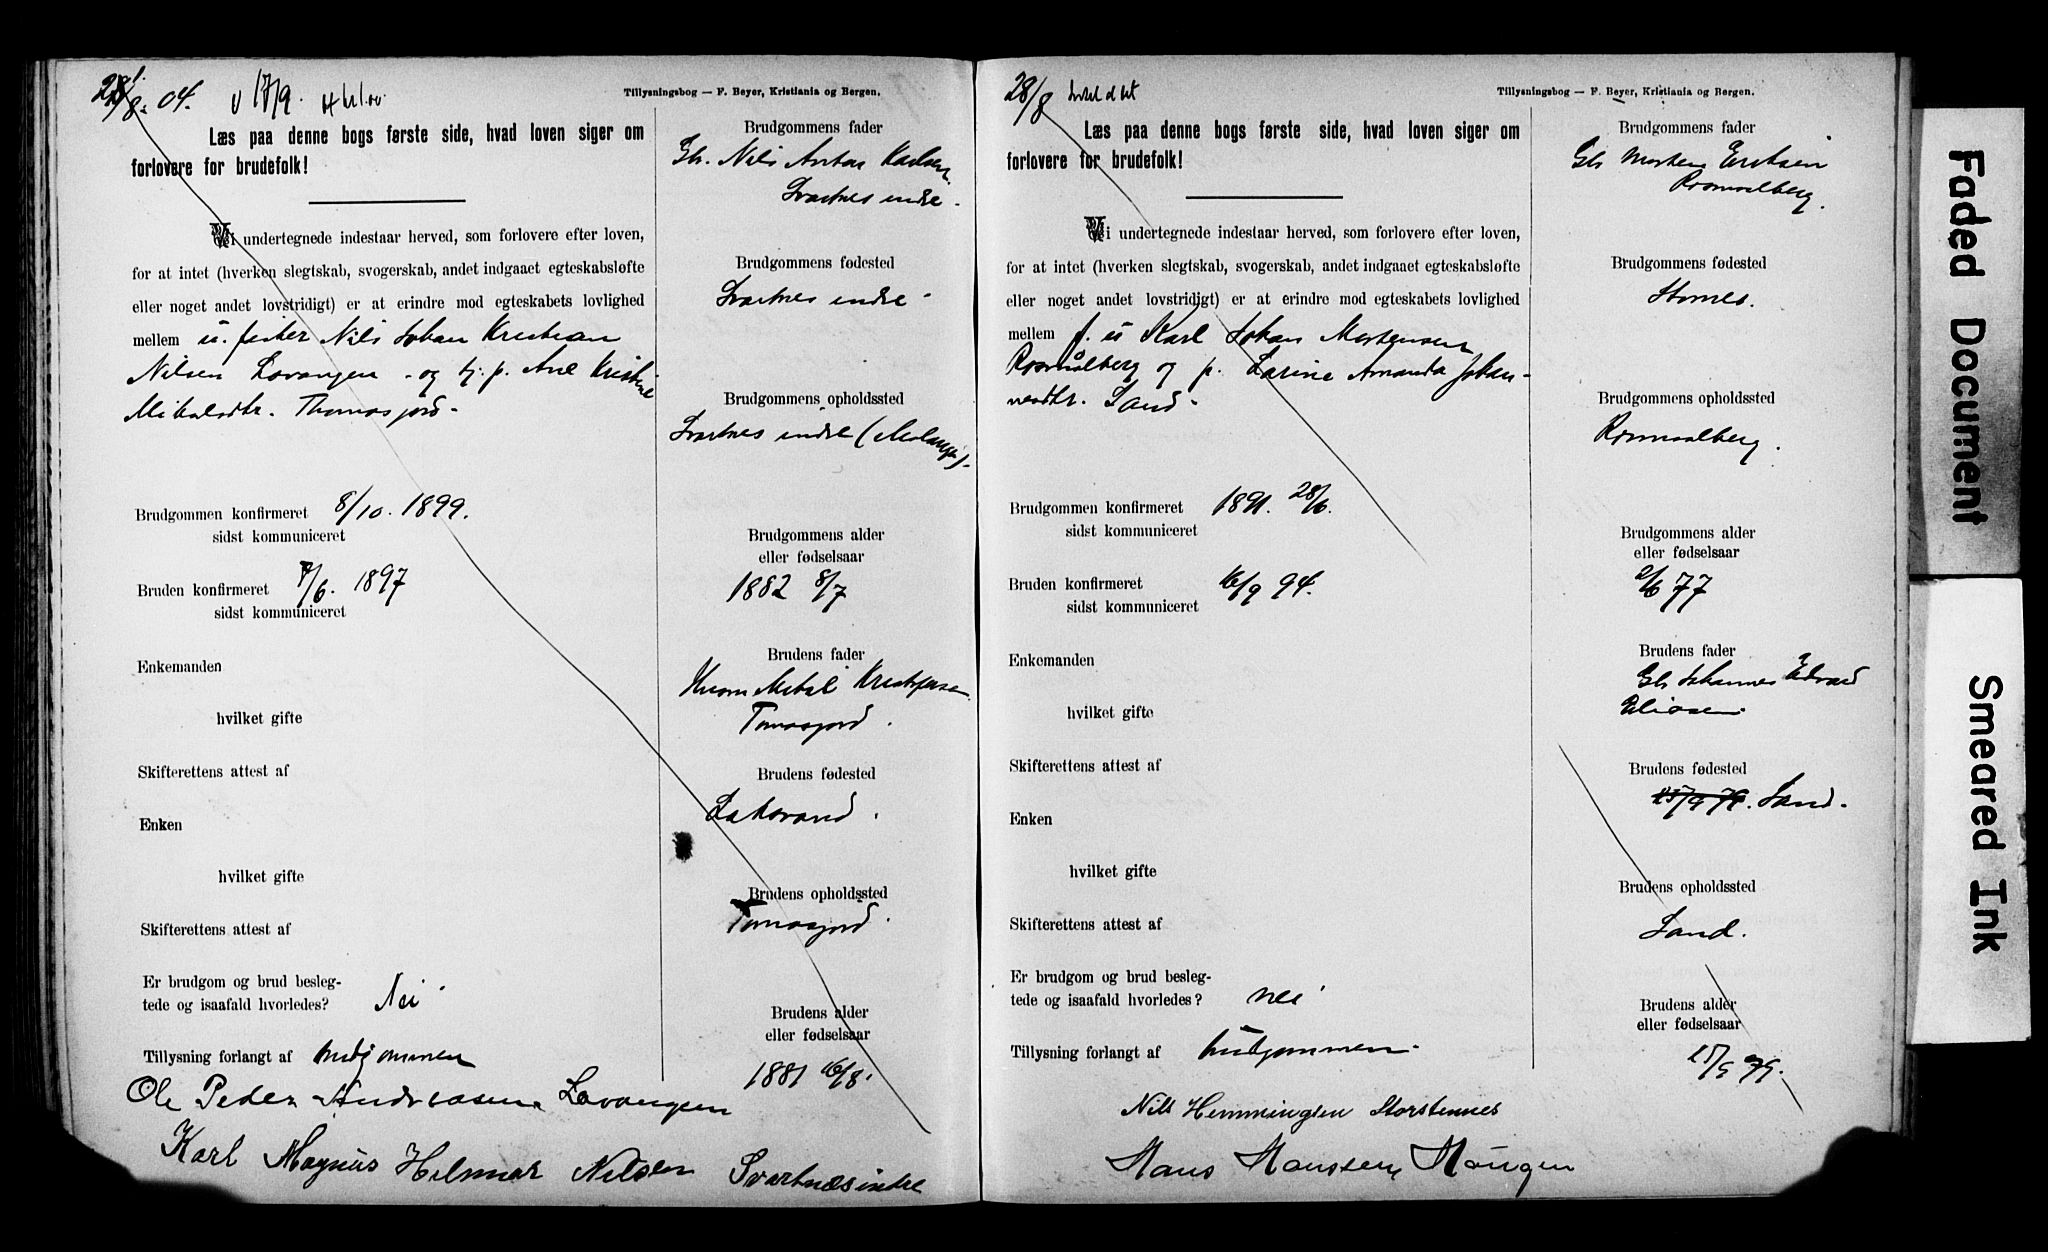 28/8. 04. v 17/9.
Tillysningsbog — F. Beyer, Kristiania og Bergen.
Læs paa denne bogs første side, hvad loven siger om
forlovere for brudefolk!
Vi undertegnede indestaar herved, som forlovere efter loven,
for at intet (hverken slegtskab, svogerskab, andet indgaaet egteskabsløfte
eller noget andet lovstridigt) er at erindre mod egteskabets lovlighed
mellem u. fisker Nils Johan Kristian
Nilsen Lavangen - og tj. p. Ane Kristine
Mikalsdtr. Thomasjord -
Brudgommen konfirmeret 8/10. 1899.
sidst kommuniceret
Bruden konfirmeret 7/6. 1897
sidst kommuniceret
Enkemanden
hvilket gifte
Skifterettens attest af
Enken
hvilket gifte
Skifterettens attest af
Er brudgom og brud besleg-
tede og isaafald hvorledes? Nei
Tillysning forlangt af brudgommen
Brudgommens fader
Gbr. Nils Anton Karlsen.
Svartnes indre.
Brudgommens fødested
Svartnes indre -
Brudgommens opholdssted
Svartnes indre (Malangen).
Brudgommens alder
eller fødselsaar
1882 8/7
Brudens fader
Husm Mikal Kristofersen
Tomasjord.
Brudens fødested
Laksvand.
Brudens opholdssted
Tomasjord.
Brudens alder
eller fødselsaar
1881 16/8.
Ole Peder Andreasen Lavangen
Karl Magnus Hilmar Nilsen Svartnæs indre
28/8
Tillysningsbog — F. Beyer, Kristiania og Bergen.
Læs paa denne bogs første side, hvad loven siger om
forlovere for brudefolk!
Vi undertegnede indestaar herved, som forlovere efter loven,
for at intet (hverken slegtskab, svogerskab, andet indgaaet egteskabsløfte
eller noget andet lovstridigt) er at erindre mod egteskabets lovlighed
mellem f. u Karl Johan Mortensen
Rømmålberg og p. Larine Amanda Johan-
nesdtr. Sand -
Brudgommen konfirmeret 1891. 28/6.
sidst kommuniceret
Bruden konfirmeret 16/9 94.
sidst kommuniceret
Enkemanden
hvilket gifte
Skifterettens attest af
Enken
hvilket gifte
Skifterettens attest af
Er brudgom og brud besleg-
tede og isaafald hvorledes? nei
Tillysning forlangt af brudgommen.
Brudgommens fader
Gbr Morten Eriksen
Rømmalberg.
Brudgommens fødested
Stornes.
Brudgommens opholdssted
Rømmalberg.
Brudgommens alder
eller fødselsaar
2/6 77
Brudens fader
Gbr Johannes Edvard
Eliasen.
Brudens fødested
Sand.
Brudens opholdssted
Sand.
Brudens alder
eller fødselsaar
15/9 79.
Nils Hemmingsen Storstennes
Hans Hanssen Haugen
Faded Document
Smeared Ink